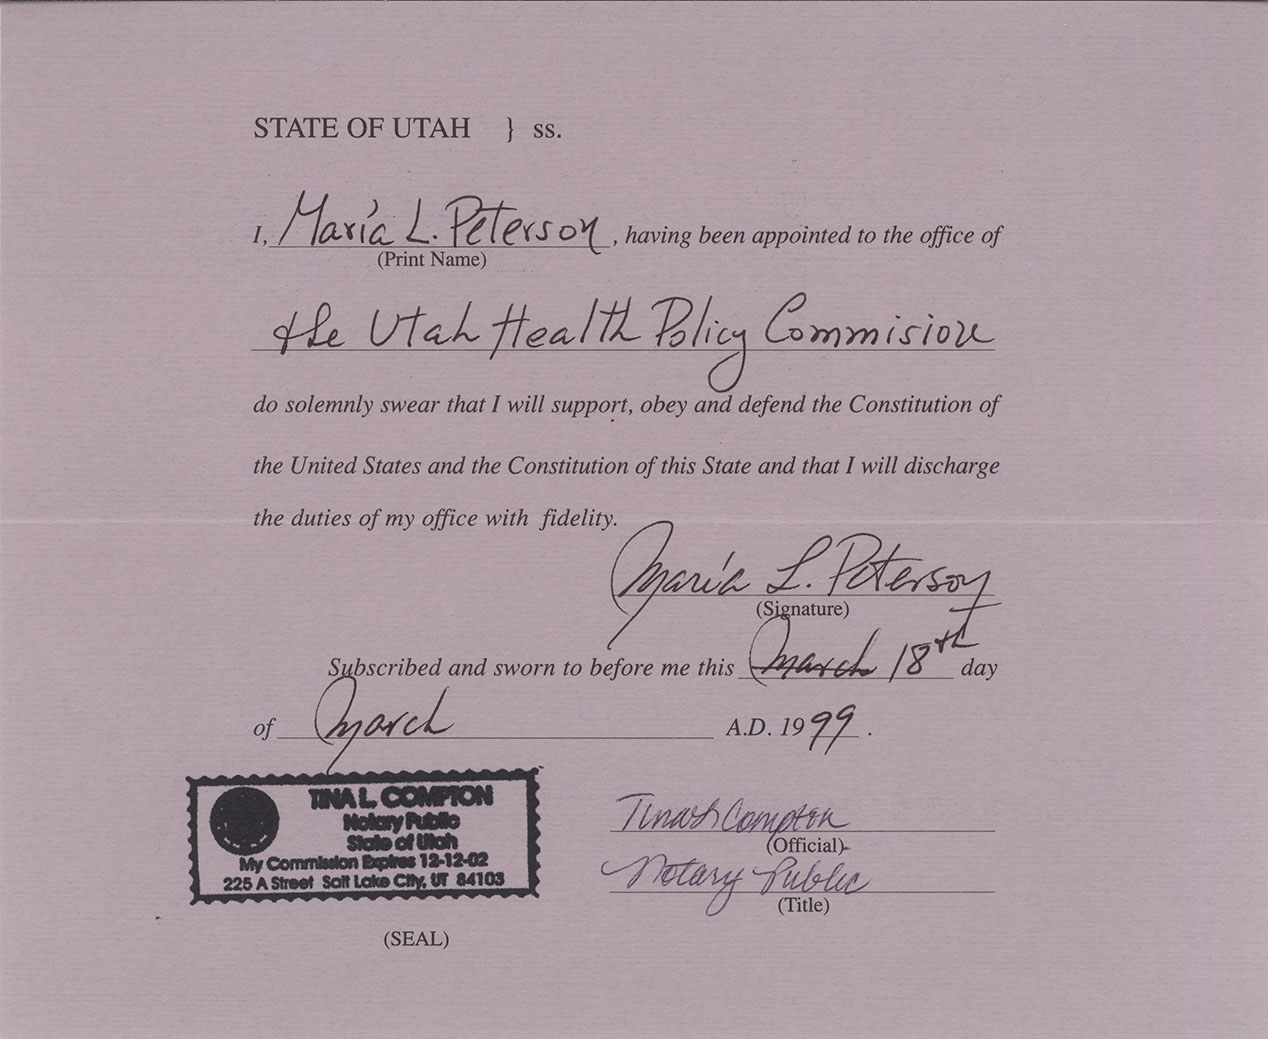 STATE OF UTAH } ss.
I, María L. Peterson, having been appointed to the office of
(Print Name)
the Utah Health Policy Commision
do solemnly swear that I will support, obey and defend the Constitution of
the United States and the Constitution of this State and that I will discharge
the duties of my office with fidelity.
María L. Peterson
(Signature)
Subscribed and sworn to before me this March 18th day
of March A.D. 1999.
TINA L. COMPTON
Notary Public
State of Utah
My Commission Expires 12-12-02
225 A Street Salt Lake City, UT 84103
(SEAL)
Tina L Compton
(Official)
Notary Public
(Title)